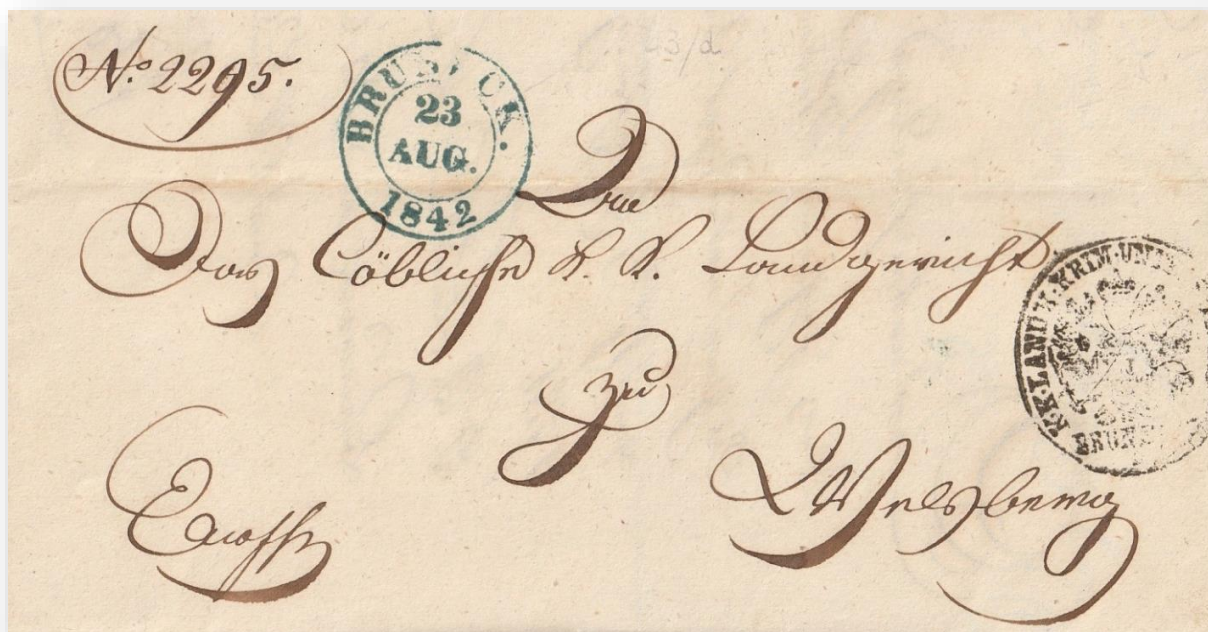 No. 2295.
BRUN CK.
23
AUG.
1842
An
Das Löbliche k. k. Landgericht
zu
Welsberg
K.K. LAND U. KRIM. UNT
BRUNE